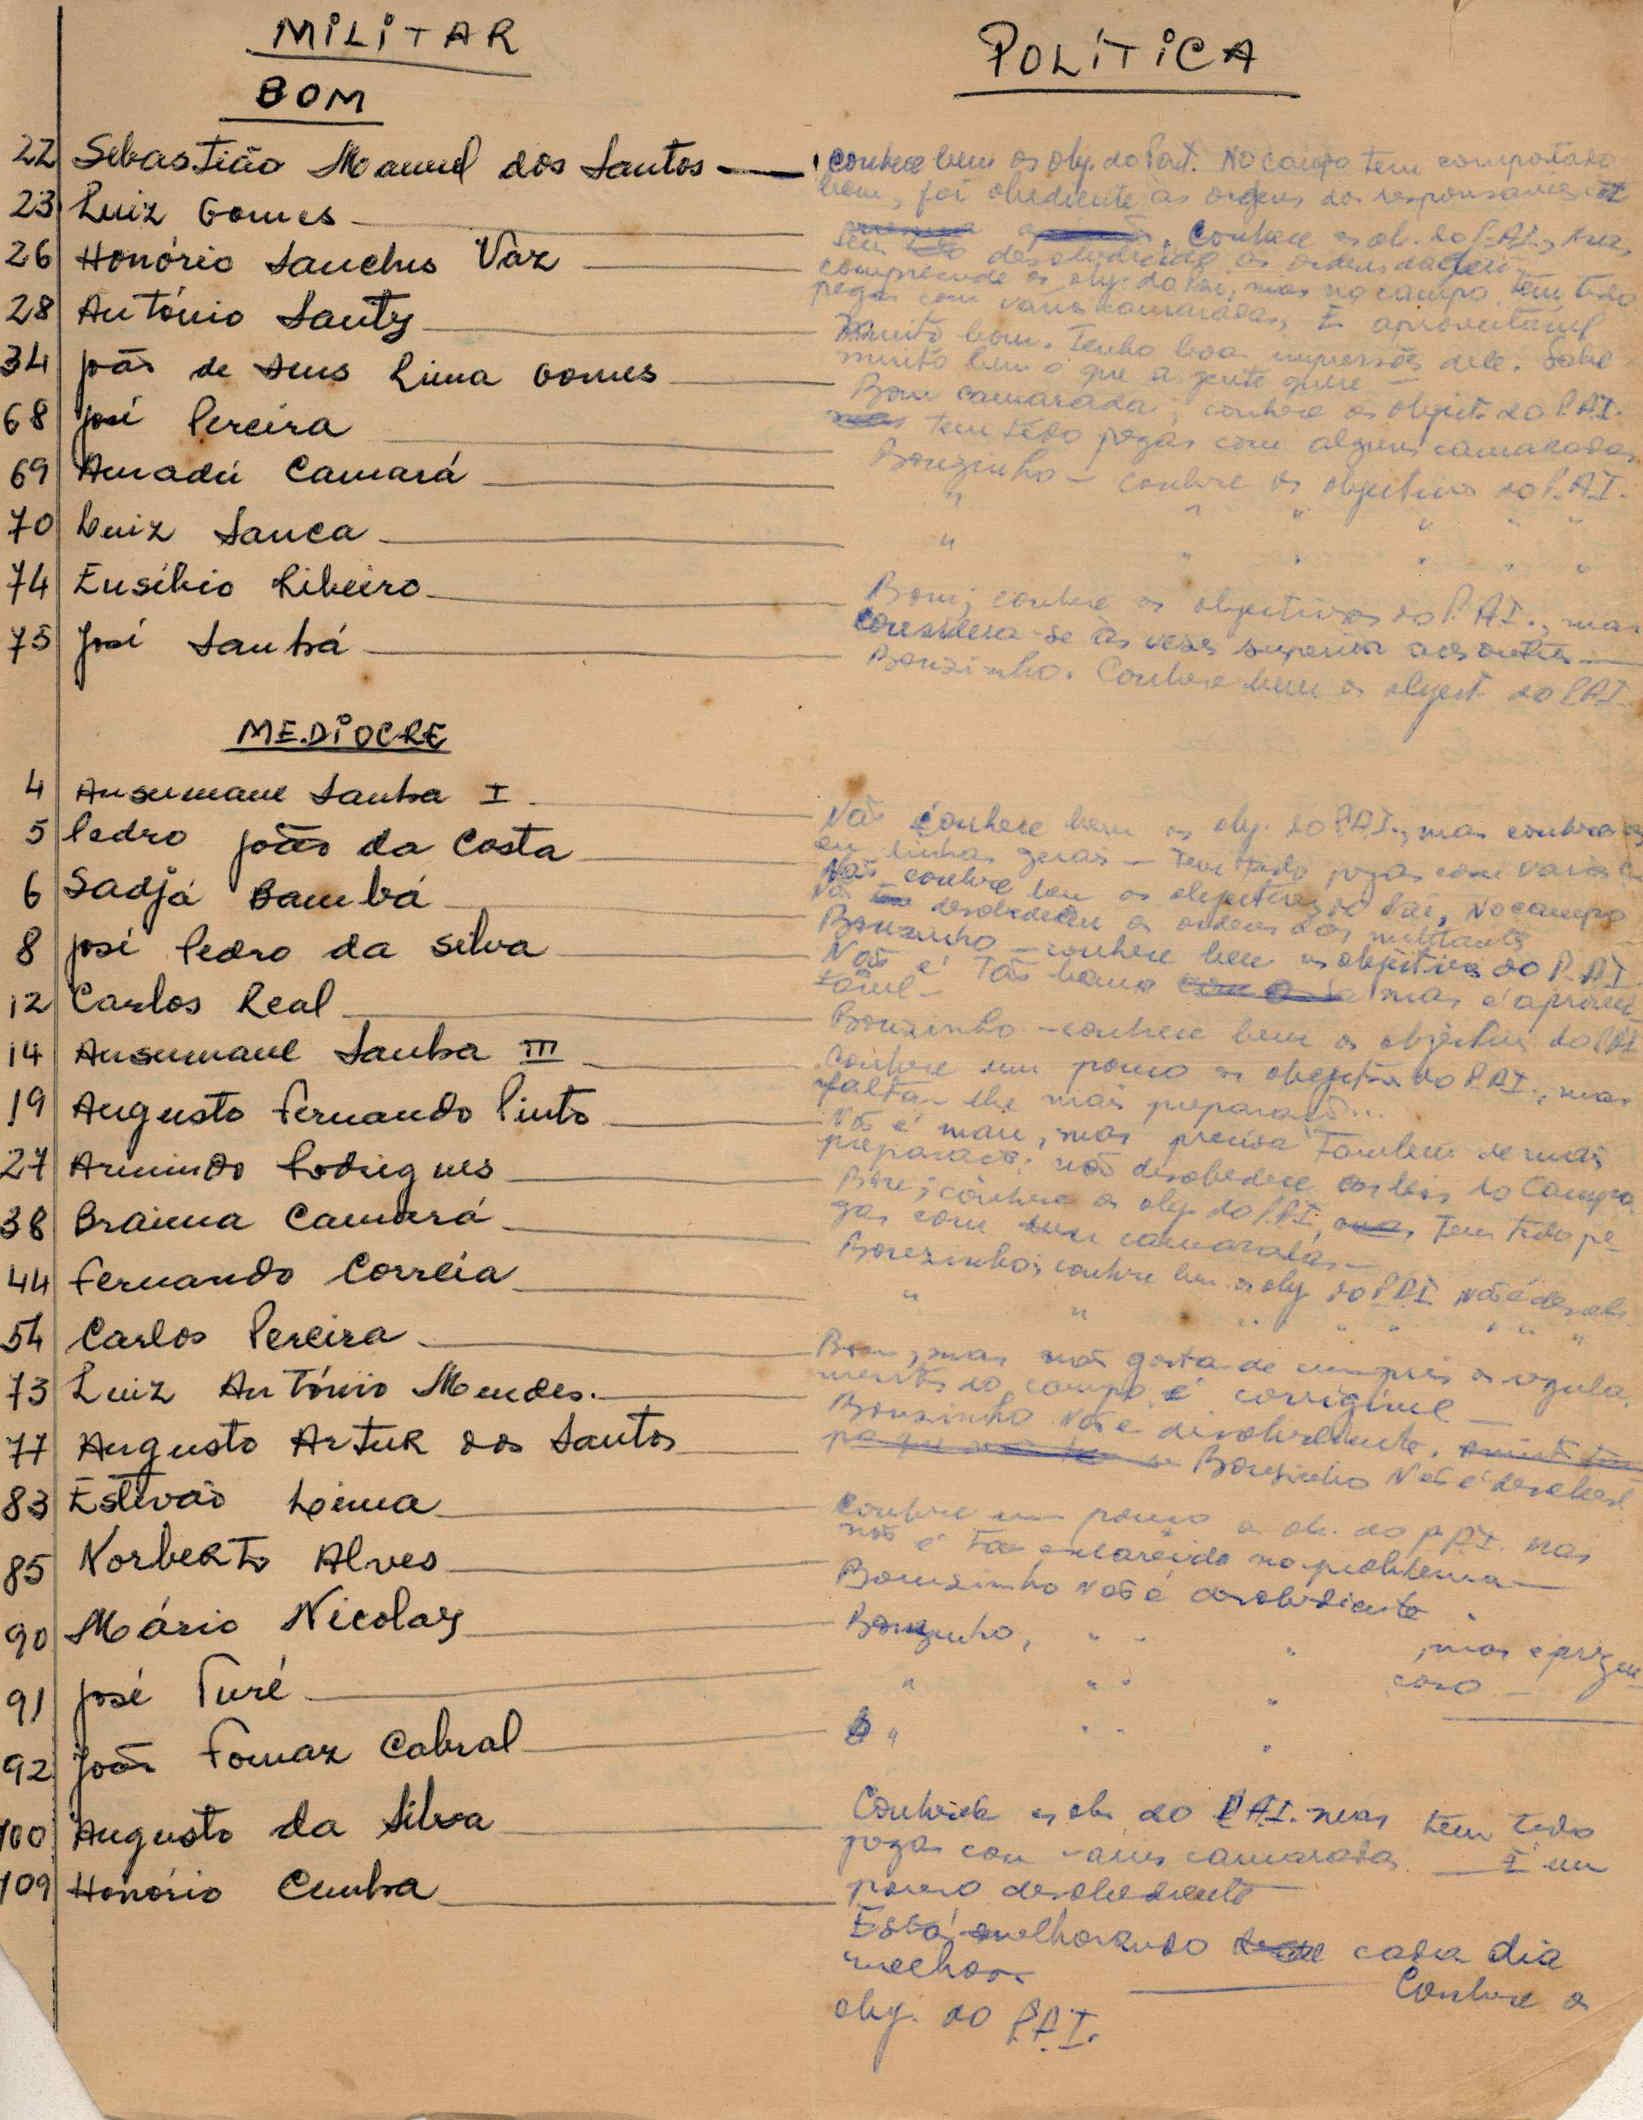 MILITAR
POLÍTICA
BOM
22 Sebastião Manuel dos Santos
conhece bem os obj. do Part. No campo tem comportado
bem, foi obediente às ordens dos responsaveis
23 Luiz Gomes
Conhece os ob. do P.A.I., mas
desobedecido as ordens
26 Honório Sanches Vaz
compreende os obj. do Pai, mas no campo tem tido
pegas com varios camaradas, É aproveitável
28 António Santy
Muito bom. Tenho boa impressão dele. Sabe
muito bem o que a gente quere
34 João de Deus Lima Gomes
Bom camarada, conhece os object. do P.A.I.
mas tem tido pegas com alguns camaradas
68 José Pereira
Bonzinho - conhece os objectivos do P.A.I.
69 Amadú Camará
" " " " " "
70 Luiz Sanca
" " " " " "
74 Eusébio Ribeiro
Bom; conhece os objectivos do P.A.I., mas
considera-se às vezes superior aos outros
75 José Sanhá
Bonzinho. Conhece bem os object. do P.A.I.
MEDIOCRE
4 Ansumane Sanha I
Não conhece bem os obj. do P.A.I., mas conhece os
em linhas gerais - Tem tido pegas com varios
5 Pedro João da Costa
Não conhece bem os objectivos do Pai, No campo
não desobedeceu as ordens dos militantes
6 Sadjá Bambá
Bonzinho - conhece bem os objectivos do P.A.I.
8 José Pedro da Silva
Não é tão bom mas é aprovei-
tável -
12 Carlos Real
Bonzinho - conhece bem os objectivos do PAI
14 Ansumane Sanha III
Conhece um pouco os objectivos do P.A.I., mas
falta-lhe mais preparação...
19 Augusto Fernando Pinto
Não é mau, mas precisa tambem de mais
preparação; não desobedece as leis do Campo
27 Armindo Rodrigues
Bom; conhece os obj. do P.A.I, mas tem tido pe-
gas com camaradas -
38 Braima Camará
Bonzinho; conhece bem os obj. do P.A.I não é desobe.
44 Fernando Corrêia
" " " " " " " "
54 Carlos Pereira
Bom, mas não gosta de cumprir os regula-
mentos do campo, é corrigivel -
73 Luiz António Mendes.
Bonzinho Não é desobediente.
77 Augusto Artur dos Santos
Bonzinho Não é desobed.
83 Estevão Lima
Conhece um pouco os ob. do P.A.I. mas
não é tão esclarecido no problema -
85 Norberto Alves
Bonzinho Não é desobediente.
90 Mário Nicolay
Bonzinho, " " " , mas é
91 José Turé
" " " "
92 João Tomaz Cabral
" " " "
100 Augusto da Silva
Conhece os ob. do P.A.I. mas tem tido
pegas com varios camaradas. É um
pouco desobediente
109 Honório Cunha
Está melhorando cada dia
melhor. Conhece os
obj. do P.A.I.